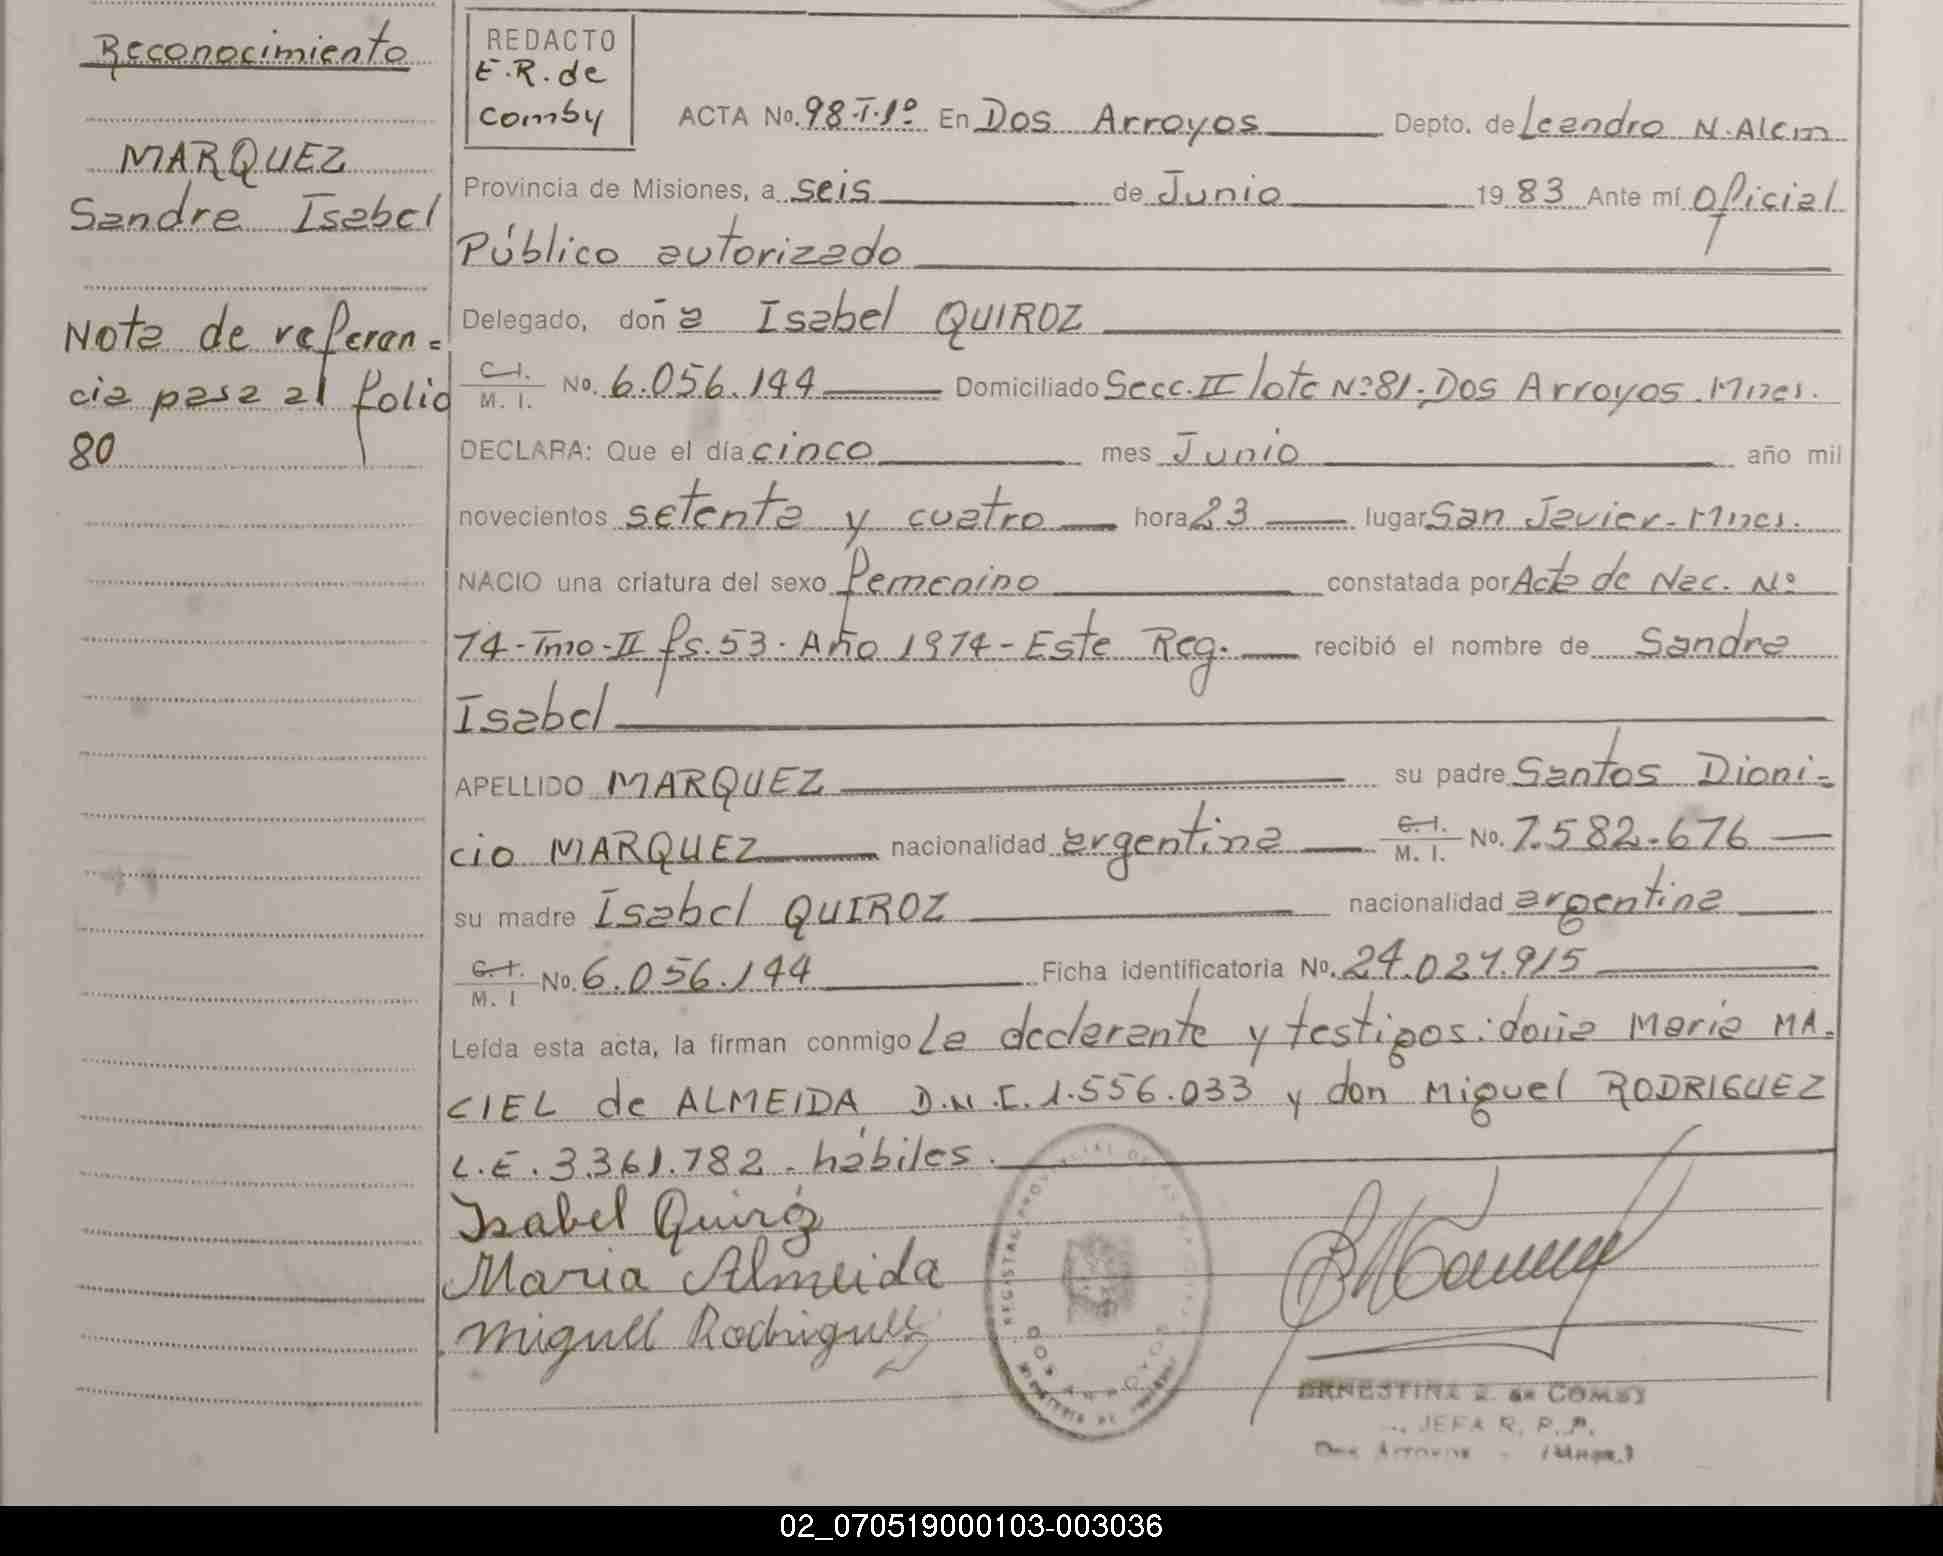 Reconocimiento
MARQUEZ
Sandra Isabel
Nota de referen=
cia pasa al folio
80
REDACTO
E.R. de
Comby
ACTA No. 98-T.1º En Dos Arroyos Depto. de Leandro N. Alem
Provincia de Misiones, a seis de Junio 1983 Ante mí Oficial
Público autorizado
Delegado, doña Isabel QUIROZ
C.I. M. I. No. 6.056.144 Domiciliado Secc. II lote Nº81. Dos Arroyos. Mnes.
DECLARA: Que el día cinco mes Junio año mil
novecientos setenta y cuatro hora 23 lugar San Javier-Mnes.
NACIO una criatura del sexo femenino constatada por Acta de Nac. Nº
74-Tmo-II fs. 53. Año 1974-Este Reg. recibió el nombre de Sandra
Isabel
APELLIDO MARQUEZ su padre Santos Dioni-
cio MARQUEZ nacionalidad argentina C.I. M. I. No. 7.582.676
su madre Isabel QUIROZ nacionalidad argentina
C.I. M. I No. 6.056.144 Ficha identificatoria No. 24.027.915
Leída esta acta, la firman conmigo La declarante y testigos: doña Maria MA-
CIEL de ALMEIDA D.N.I. 1.556.033 y don Miguel RODRIGUEZ
L.E. 3.361.782. hábiles.
Isabel Quiróz
Maria Almeida
Miguel Rodriguez
DOS ARROYOS
ERNESTINA R. de COMBY
JEFA R. P. P.
Dos Arroyos - (Mnes.)
02_070519000103-003036